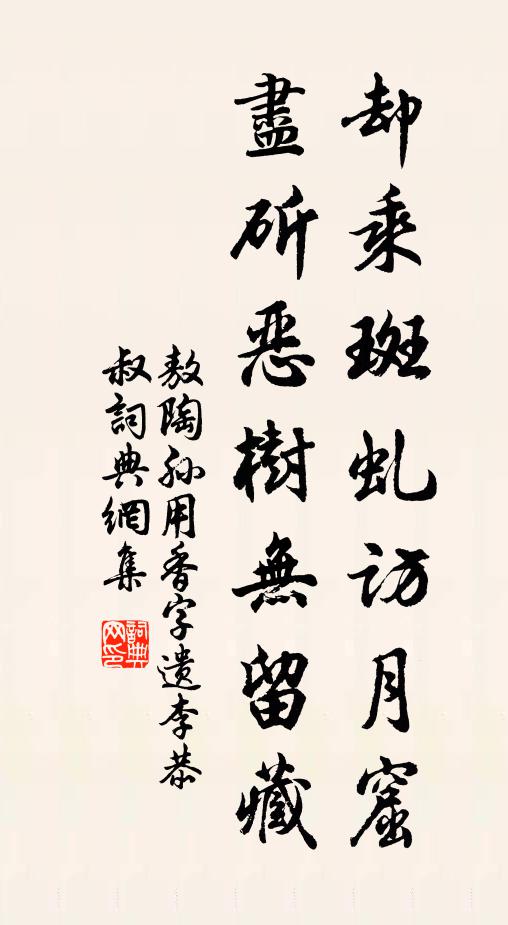 却乘斑虬訪月窟
盡斫惡樹無留藏
敖陶孫用香字遺李恭
叔詞典網集
詞典
网印